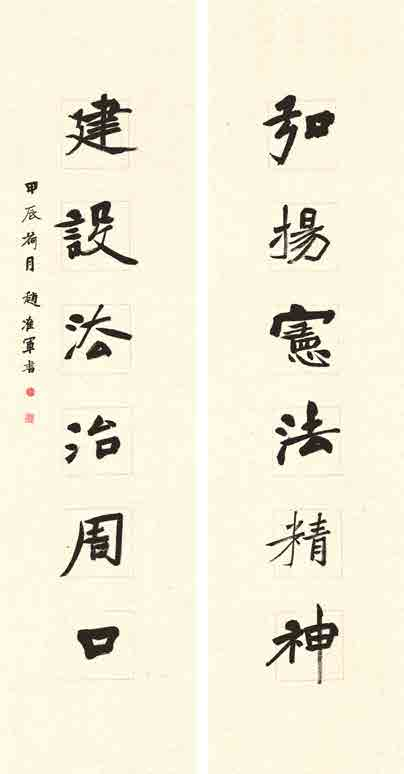 弘揚憲法精神
建設法治周口
甲辰荷月 趙准軍書